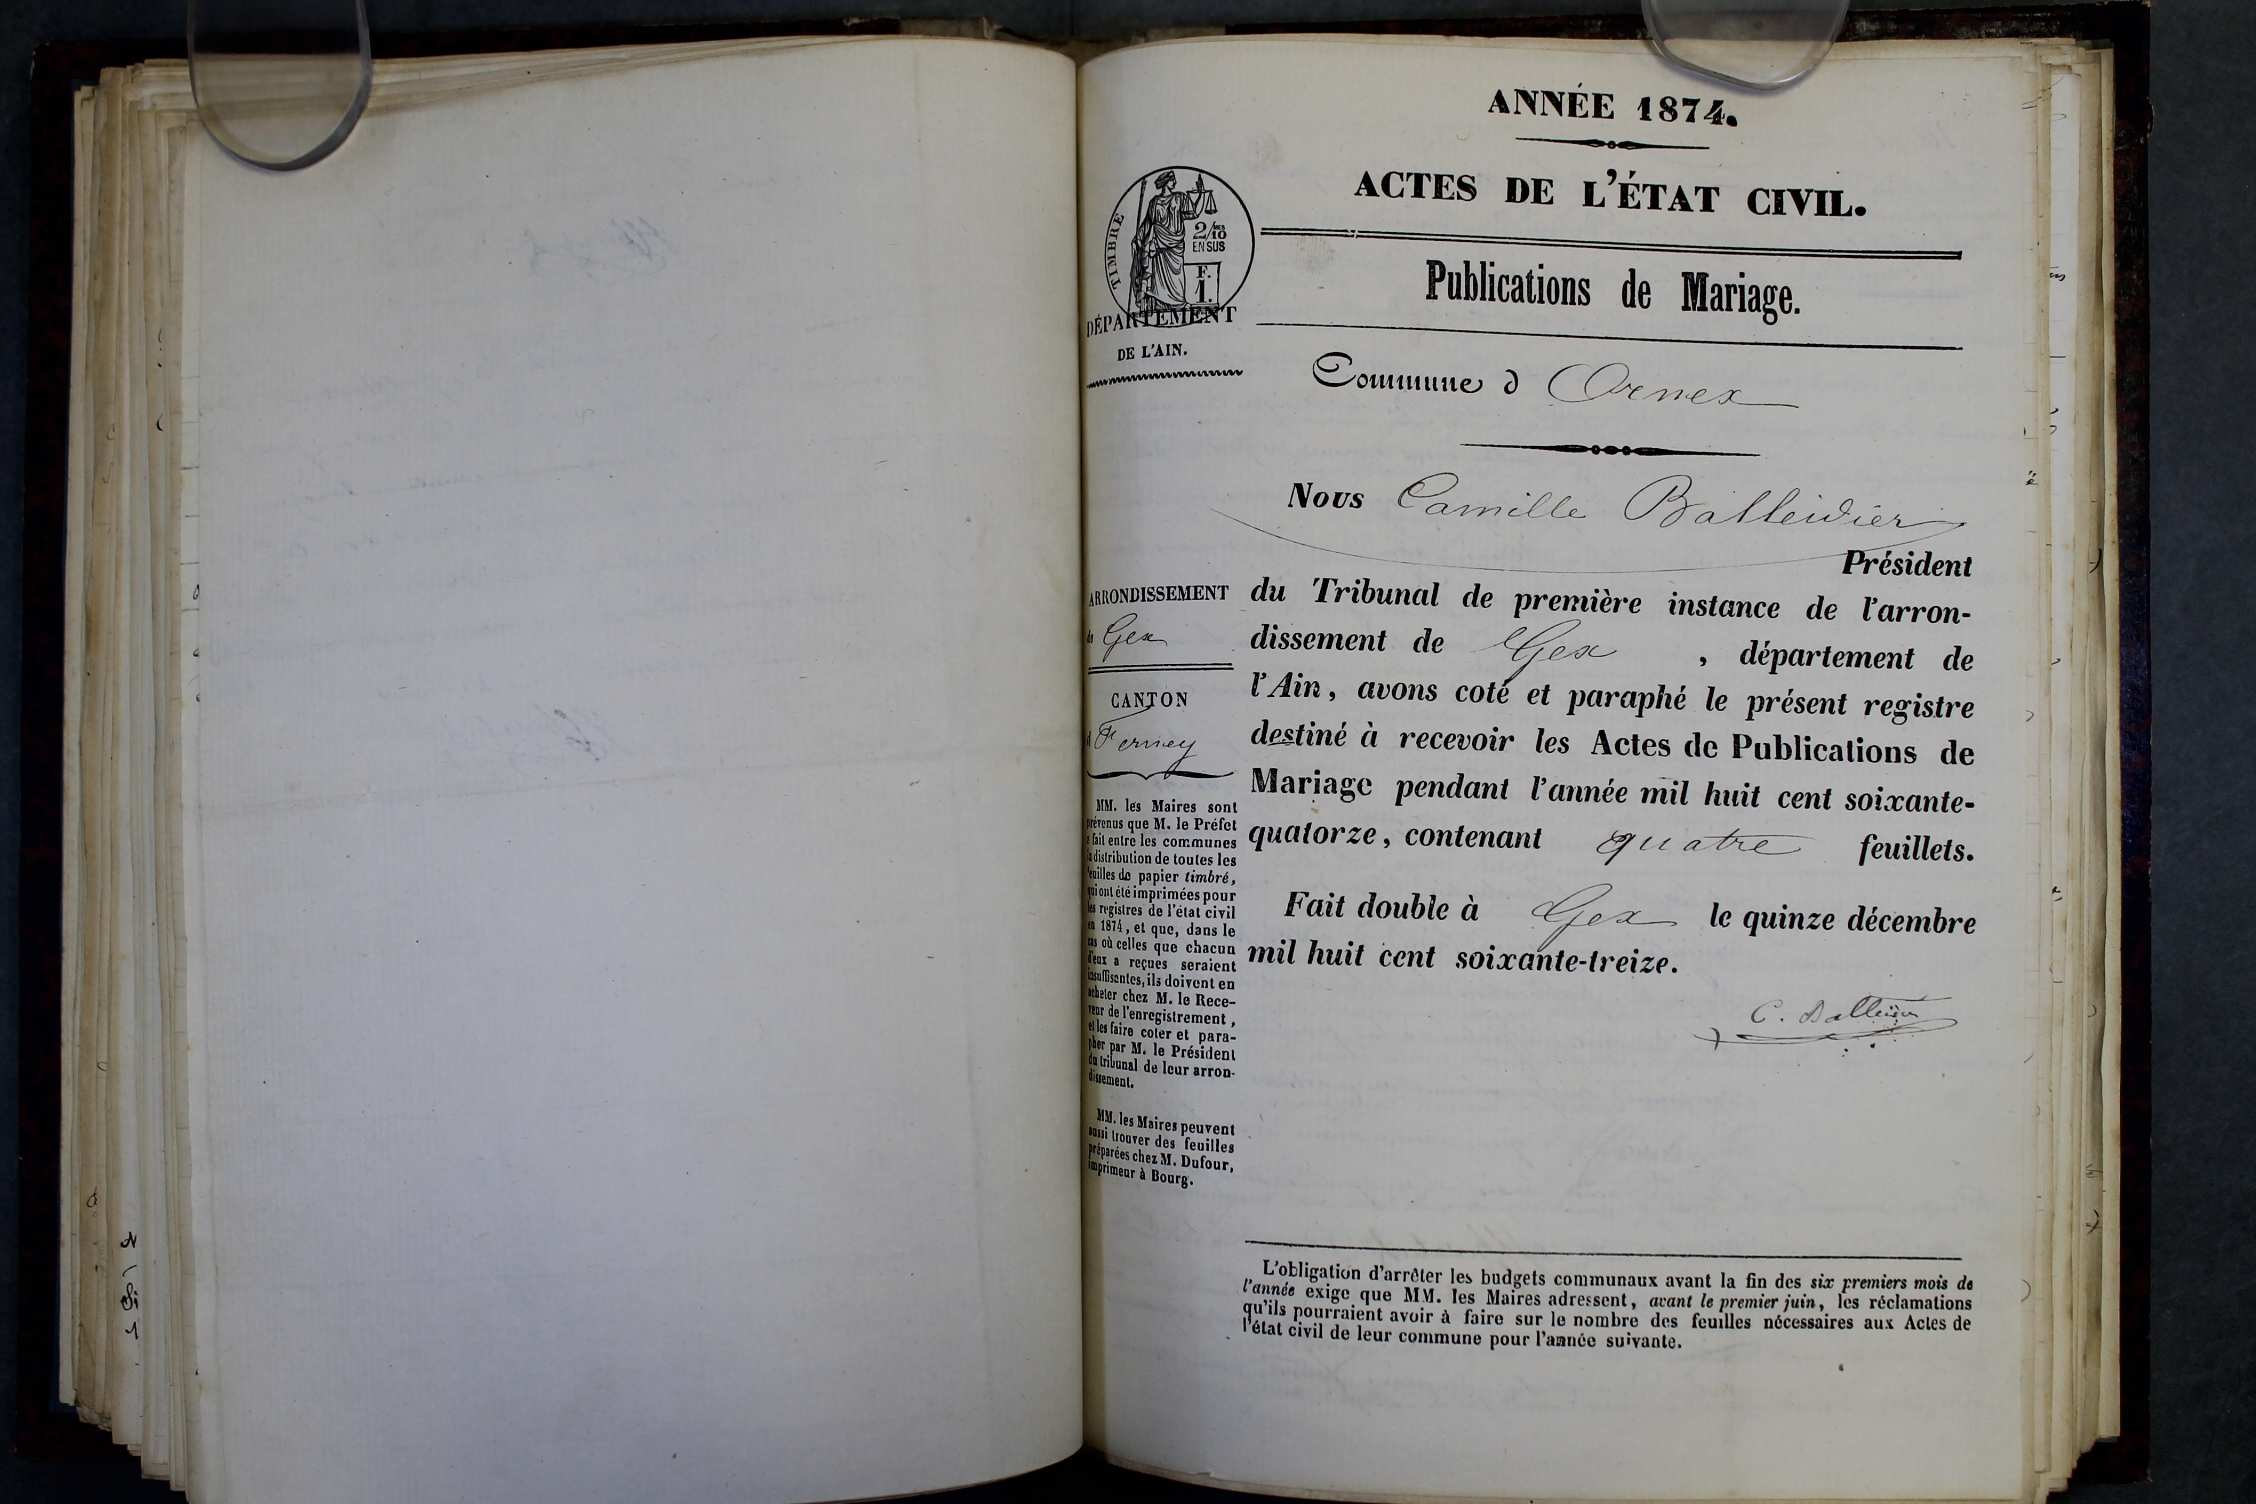 ANNÉE 1874.
ACTES DE L'ÉTAT CIVIL.
TIMBRE
2/10 DES
EN SUS
F.
1.
DÉPARTEMENT
DE L'AIN.
Publications de Mariage.
Commune d Ornex
Nous Camille Balleidier
Président
du Tribunal de première instance de l'arron-
dissement de Gex , département de
l'Ain, avons coté et paraphé le présent registre
destiné à recevoir les Actes de Publications de
Mariage pendant l'année mil huit cent soixante-
quatorze, contenant quatre feuillets.
Fait double à Gex le quinze décembre
mil huit cent soixante-treize.
C. Balleidier
ARRONDISSEMENT
de Gex
CANTON
d Ferney
MM. les Maires sont
prévenus que M. le Préfet
a fait entre les communes
la distribution de toutes les
feuilles de papier timbré,
qui ont été imprimées pour
les registres de l'état civil
en 1874, et que, dans le
cas où celles que chacun
d'eux a reçues seraient
insuffisantes, ils doivent en
acheter chez M. le Rece-
veur de l'enregistrement,
et les faire coter et para-
pher par M. le Président
du tribunal de leur arron-
dissement.
MM. les Maires peuvent
aussi trouver des feuilles
préparées chez M. Dufour,
imprimeur à Bourg.
L'obligation d'arrêter les budgets communaux avant la fin des six premiers mois de
l'année exige que MM. les Maires adressent, avant le premier juin, les réclamations
qu'ils pourraient avoir à faire sur le nombre des feuilles nécessaires aux Actes de
l'état civil de leur commune pour l'année suivante.